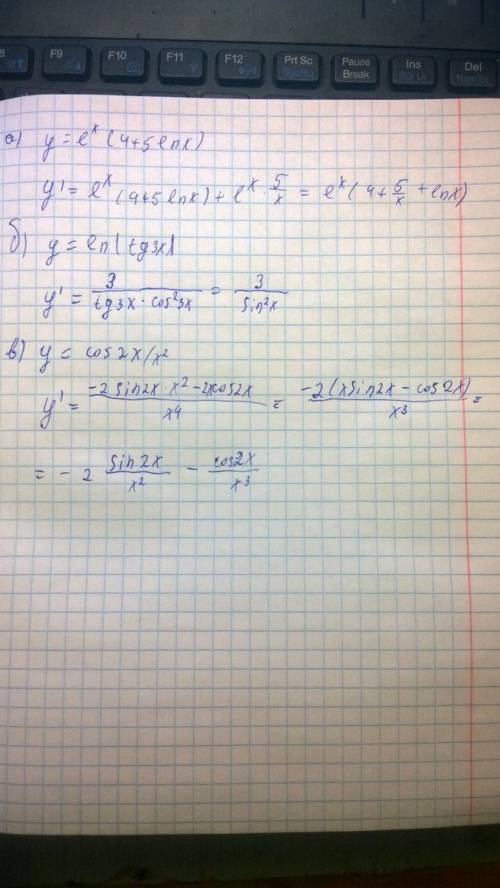 F9 F10 F11 F12 Prt Sc Pause Ins Del
SysRq Break Scr Lk Num Lk
а) y = e^x (4+5lnx)
y' = e^x (4+5lnx) + e^x · 5/x = e^x (4 + 5/x + lnx)
б) y = ln(tg3x)
y' = 3/(tg3x · cos²3x) = 3/(sin²x)
в) y = cos2x/x²
y' = (-2sin2x · x² - 2xcos2x)/x⁴ = (-2(xsin2x - cos2x))/x³ =
= -2 sin2x/x² - cos2x/x³